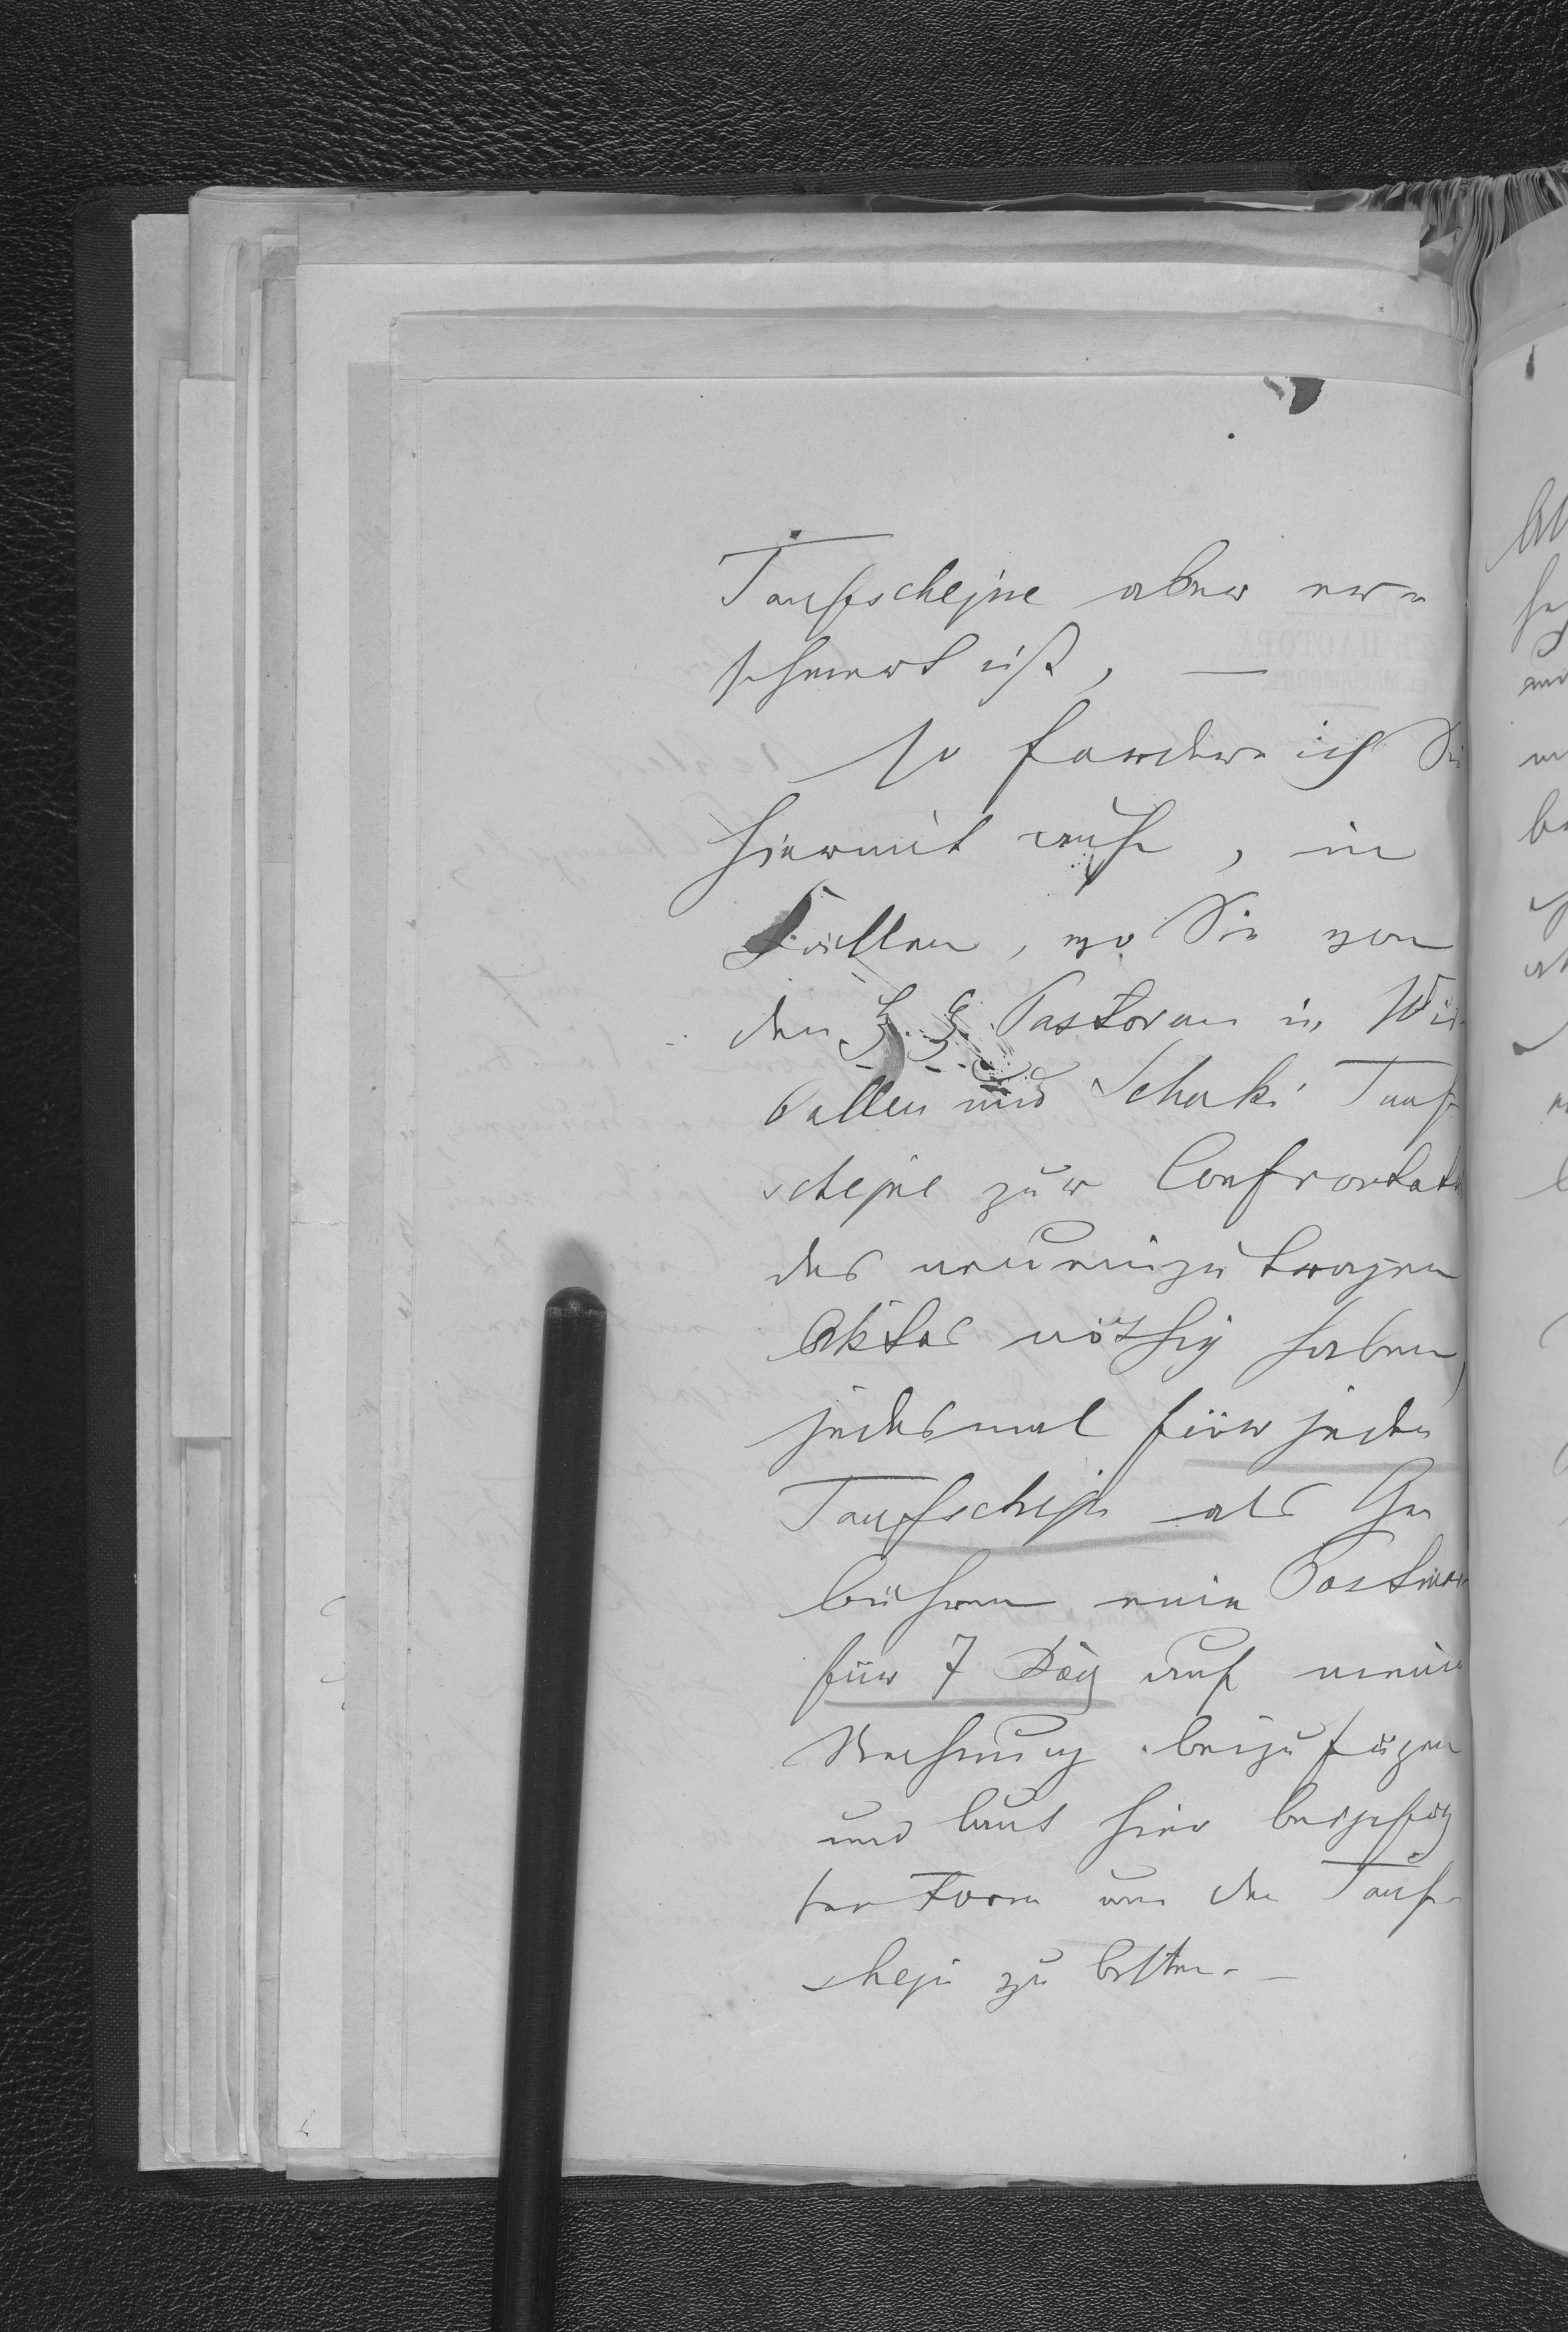 Taufscheine aber er-
schwert ist, —
so fordere ich Sie
hiermit auf, in
Fällen, wo Sie von
den H. H. Pastoren in Wir-
ballen und Schaki Tauf-
scheine zur Confrontati
des neueinzutragen
Aktes nöthig haben,
jedesmal für jeden
Taufschein als Ge
bühren eine Postmar
für 7 Kop auf meine
Rechnung beizufügen
und laut hier beigefüg
ter Form um den Tauf-
schein zu bitten. —